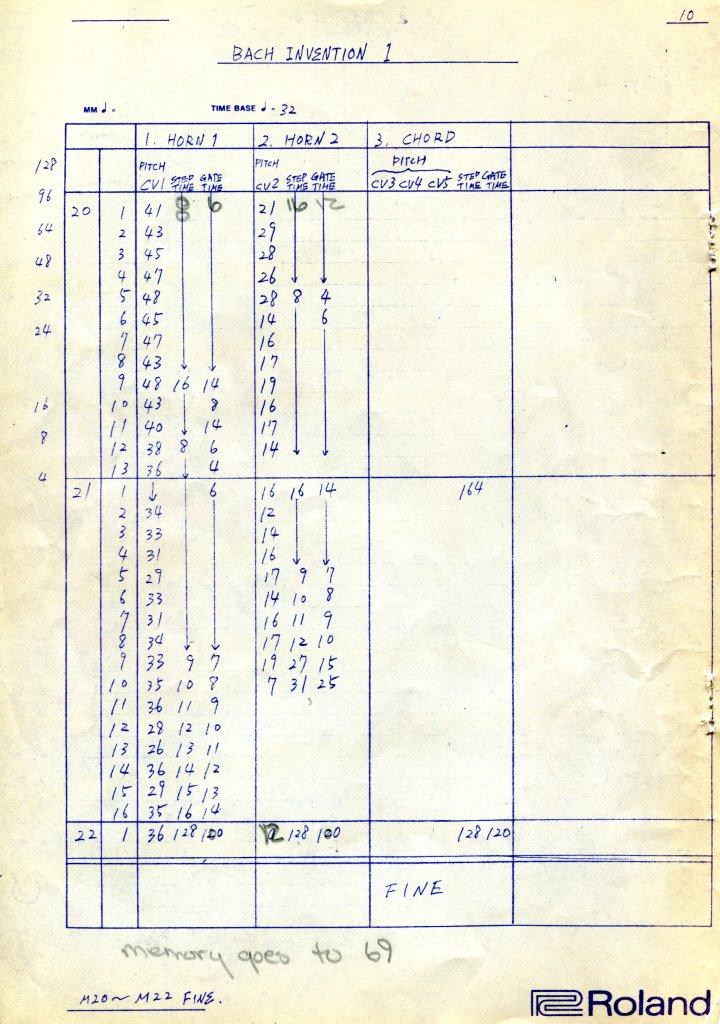 10
BACH INVENTION 1
MM ♩ = TIME BASE ♩ = 32
1. HORN 1 2. HORN 2 3. CHORD
128 PITCH PITCH PITCH
CV1 STEP TIME GATE TIME CV2 STEP TIME GATE TIME CV3 CV4 CV5 STEP TIME GATE TIME
96
20 1 41 8 6 21 16 12
64 2 43 29
3 45 28
48 4 47 26
32 5 48 28 8 4
6 45 14 6
24 7 47 16
8 43 17
9 48 16 14 19
16 10 43 8 16
11 40 14 17
8 12 38 8 6 14
4 13 36 4
21 1 ↓ 6 16 16 14 164
2 34 12
3 33 14
4 31 16
5 29 17 9 7
6 33 14 10 8
7 31 16 11 9
8 34 17 12 10
9 33 9 7 19 27 15
10 35 10 8 7 31 25
11 36 11 9
12 28 12 10
13 26 13 11
14 36 14 12
15 29 15 13
16 35 16 14
22 1 36 128 120 12 128 100 128 120
FINE
memory goes to 69
M20~M22 FINE.
Roland